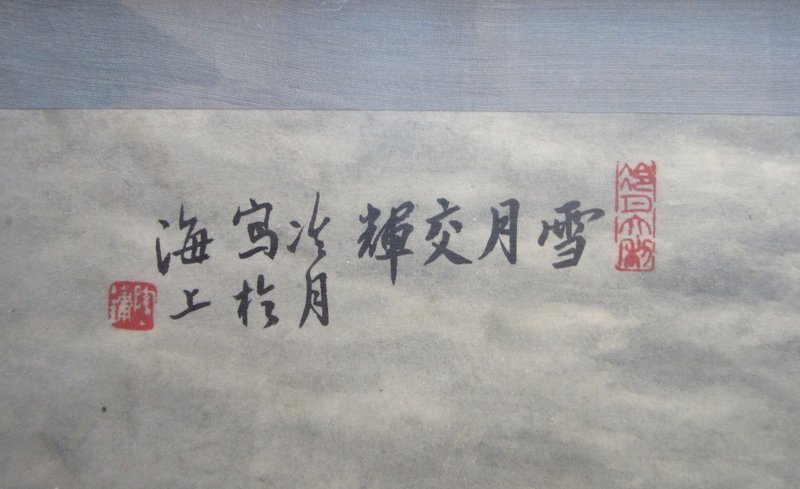 雪月交輝
冷月
寫於
海上